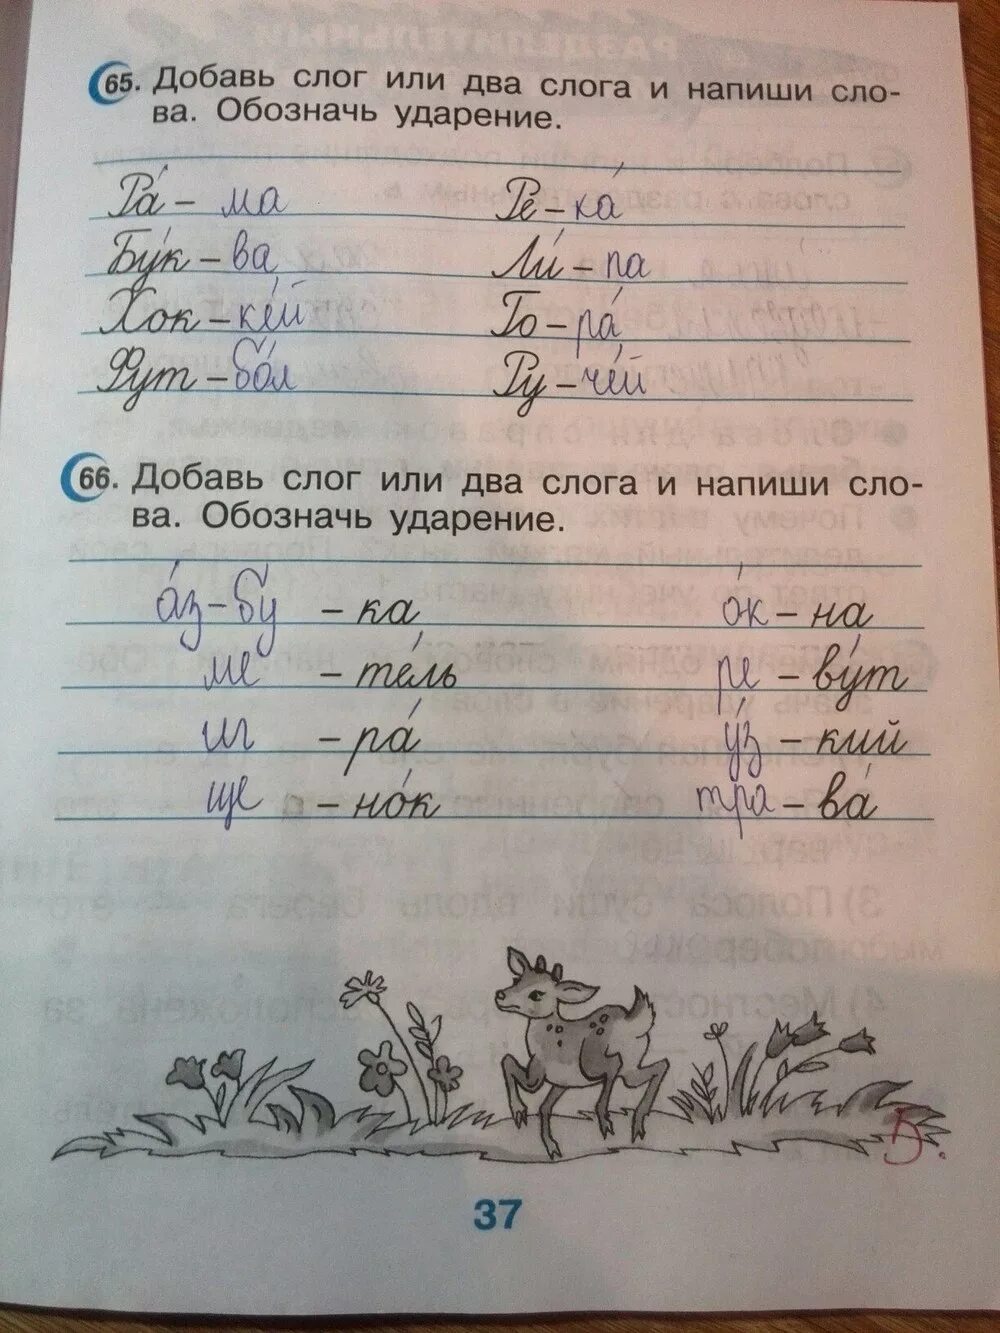 65. Добавь слог или два слога и напиши сло-
ва. Обозначь ударение.
Ра́ – ма Ре – ка́
Бу́к – ва Ли́ – па
Хок – ке́й Го – ра́
Фут – бо́л Ру – че́й
66. Добавь слог или два слога и напиши сло-
ва. Обозначь ударение.
а́з – бу – ка о́к – на
ме – те́ль ре – ву́т
иг – ра́ у́з – кий
ще – но́к тра – ва́
37